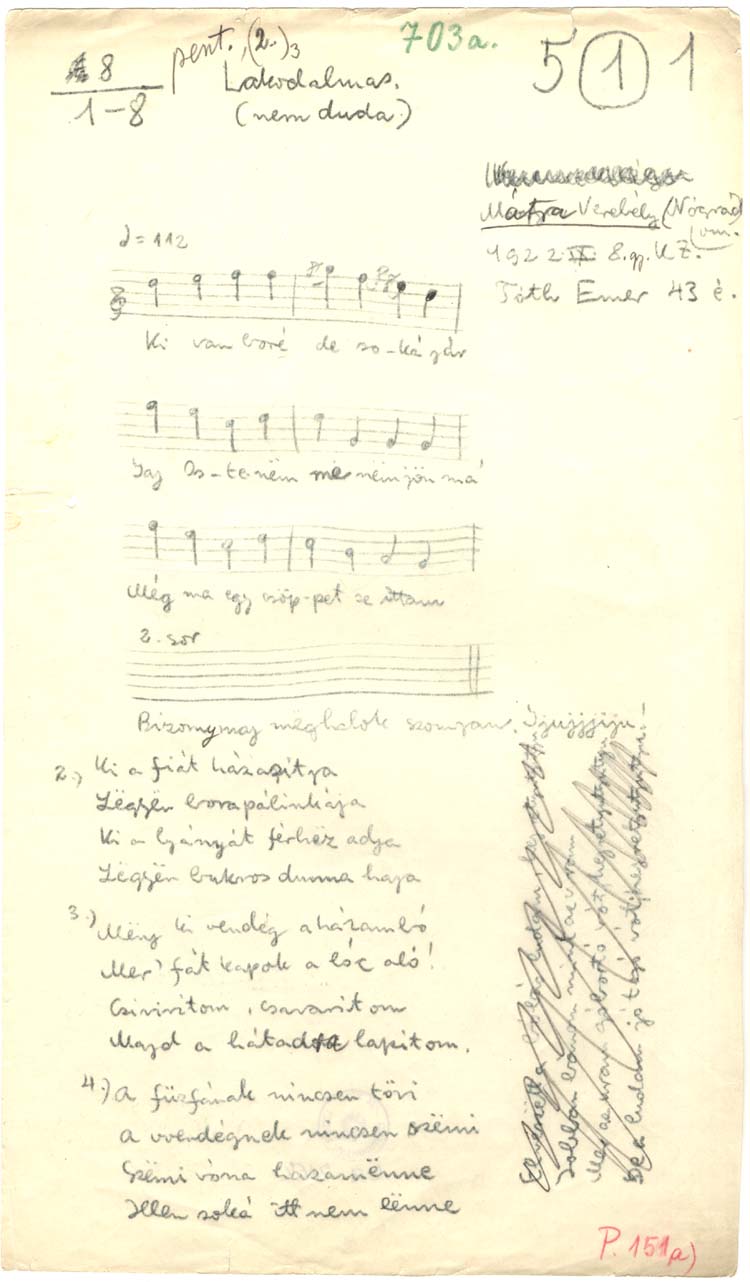 8
1-8
pent., (2.)3
Lakodalmas.
(nem duda)
703a.
5 1 1
Mátra Verebély (Nógrád
vm.
1922 IX. 8. gy. K Z.
Tóth Emer 43 é.
♩ = 112
Ki van boré de so-ká jár
Jaj Is-te-nëm mér nëm jön má
Még ma egy csöp-pet se ittam
2. sor
Bizonymaj meghalok szomjan. Ijujjjiju.
2.) Ki a fiát házasítja
Lëgyën bora pálinkája
Ki a lyányát férhëz adja
Lëgyën bukros dunna haja
3.) Mëny ki vendég a házambó
Mer' fát kapok a lóc aló!
Csivirítom, csavarítom
Majd a hátadra lapítom.
4.) A fűzfának nincsen tövi
A vvendégnek nincsen szëmi
Szëmi vóna hazamënne
Illen soká itt nem lënne
P. 151a)